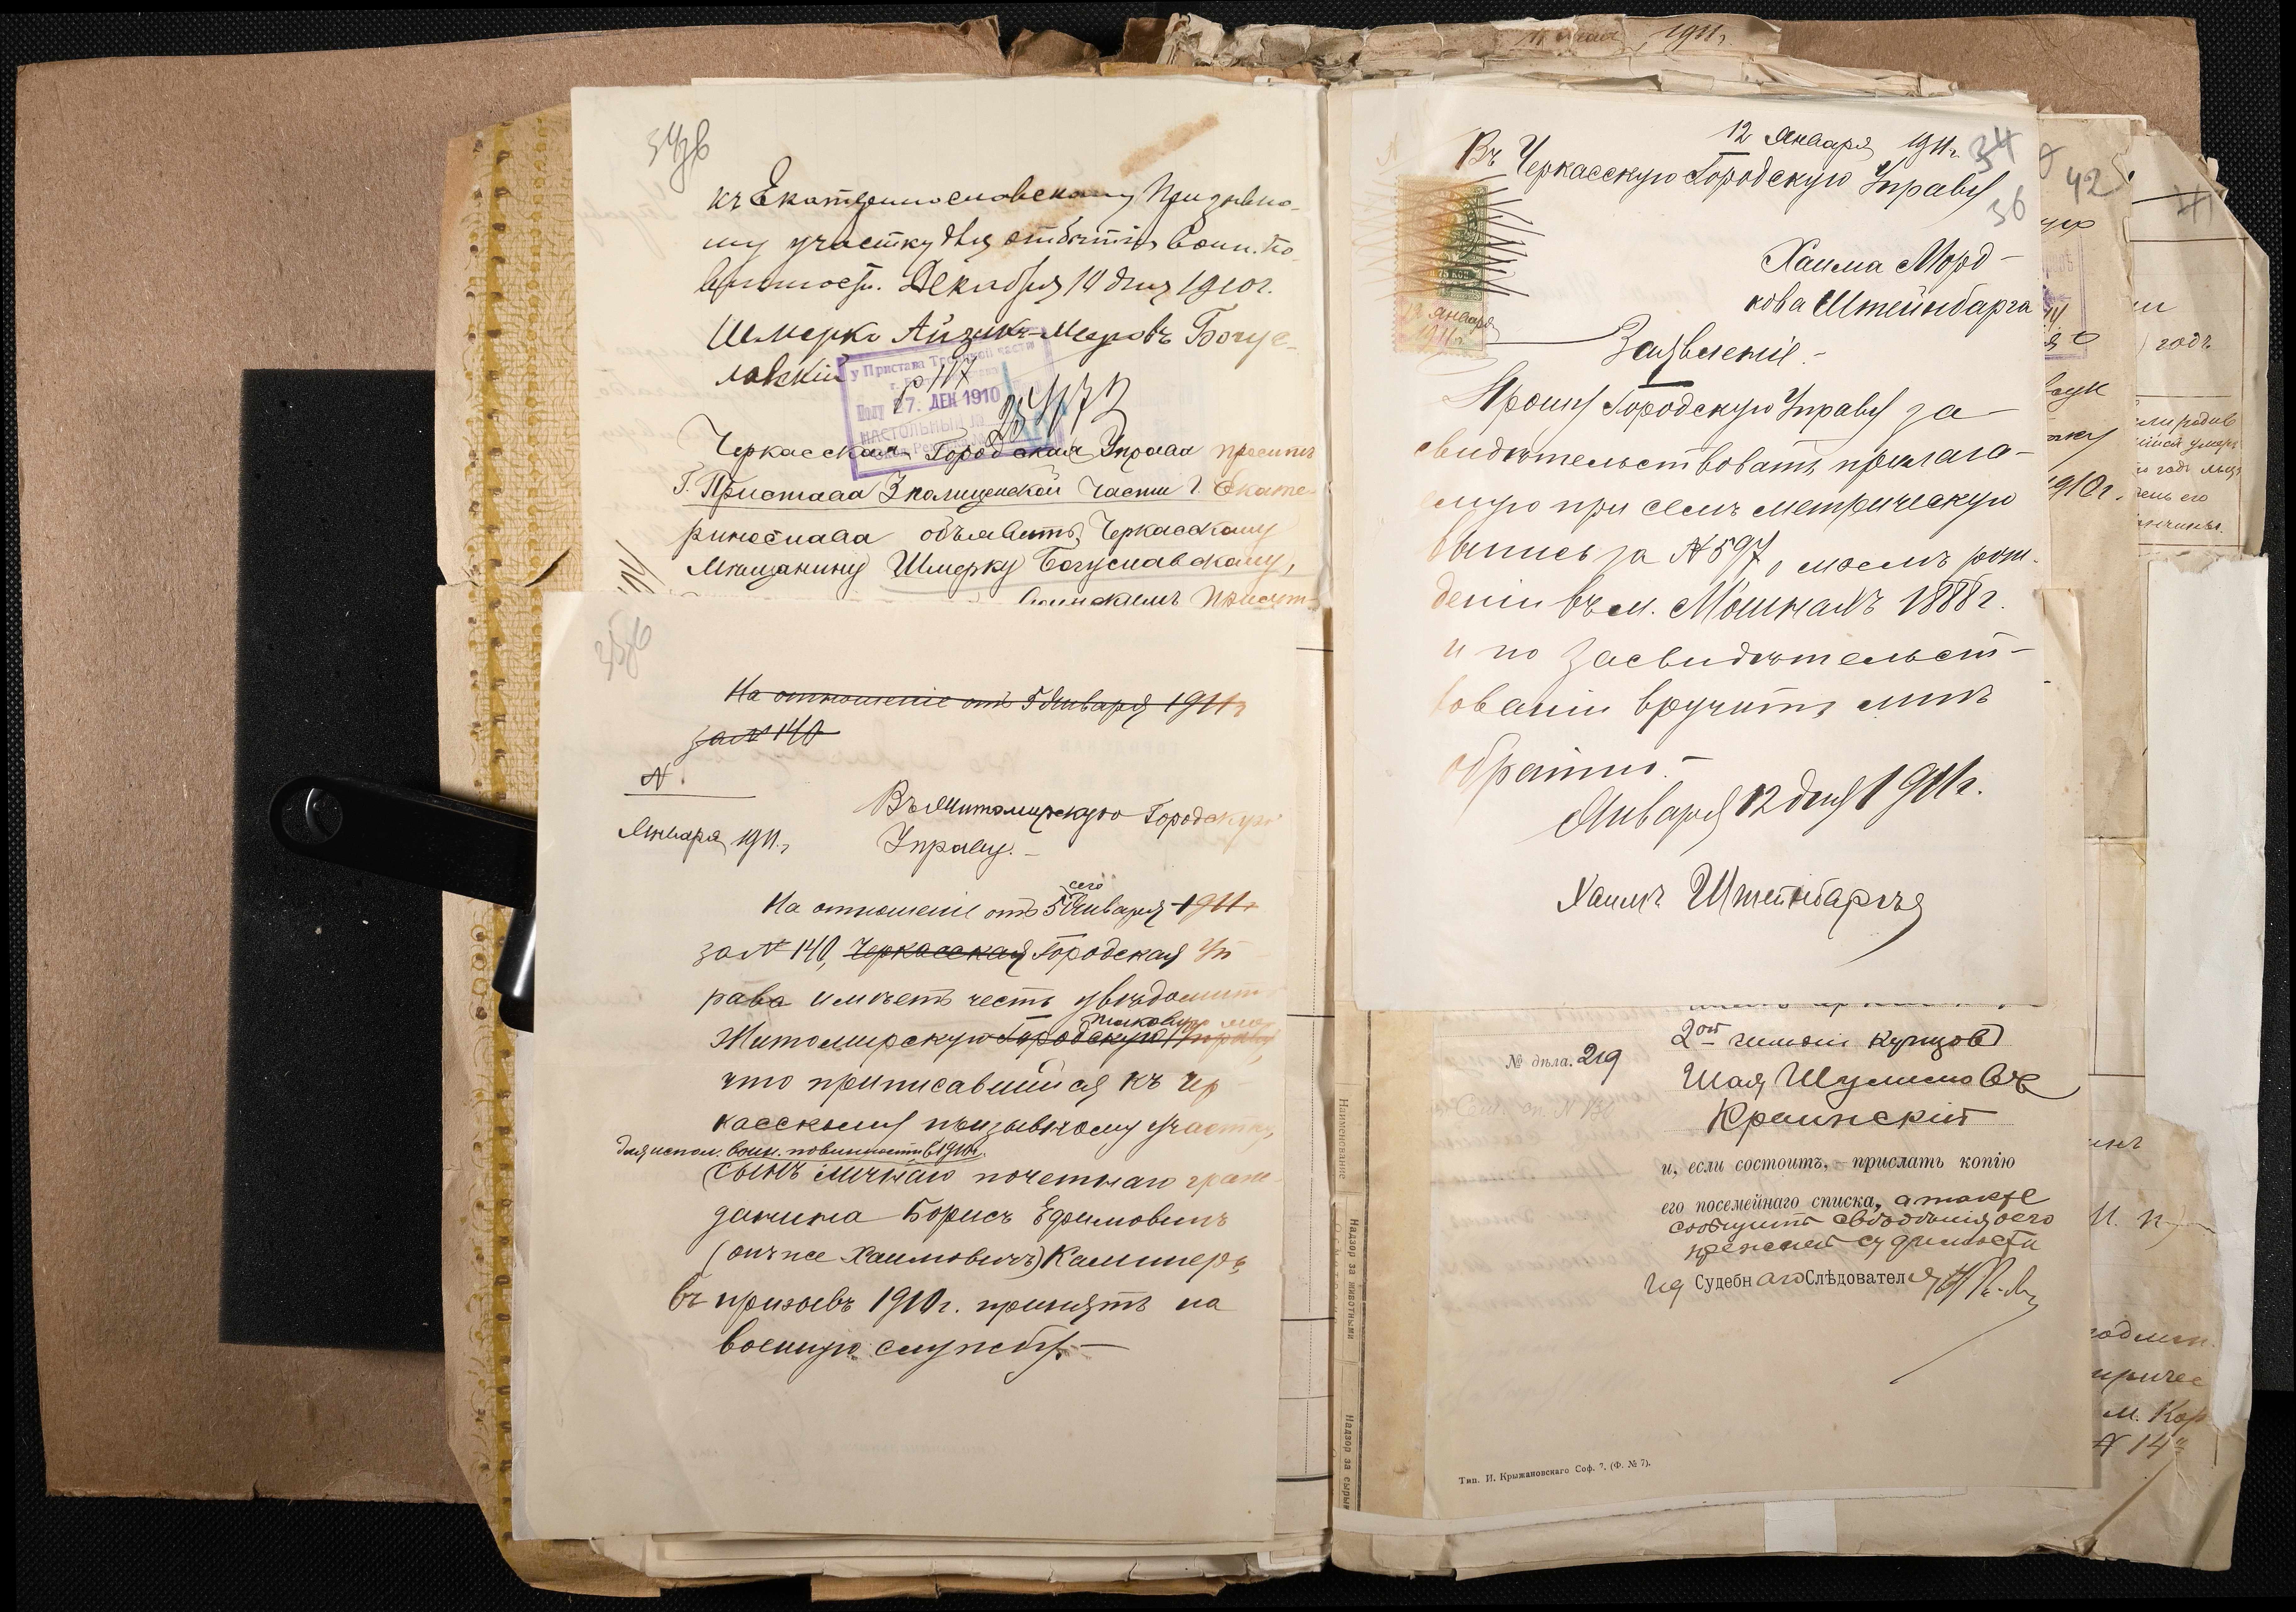 34об
къ Екатеринославскому Призывно-
му участку для отбытія воин. по-
винности. Декабря 10 дня 1910г.
Шмерко Айзикъ-Меровъ Богус-
лавскій
у Пристава Третьей части
27. ДЕК 1910
НАСТОЛЬНЫЙ
25473
Черкасская Городская Управа проситъ
Г. Пристава 3 полицейской части г. Екате-
ринослава объявить Черкасскому
мѣщанину Шмерку Богуславскому,
воинскимъ присут-
35об
На отношеніе отъ 5 Января 1911г
за № 140
№.
Января 1911г.
Въ Житомирскую Городскую
Управу.-
сего
На отношеніе отъ 5 Января 1911г
за № 140, Черкасская Городская Уп
рава имѣетъ честь увѣдомить
Житомирскую Городскую Управу,
что приписавшійся къ Чер
касскому призывному участку,
для испол. воин. повинности въ 1910г.
сынъ личнаго почетнаго граж-
данина Борисъ Ефимовичъ
(онъ же Хаимовичъ) Каминеръ,
въ призывъ 1910г. принятъ на
военную службу.-
1911г.
12 Января 1911г.
34
36
Въ Черкасскую Городскую Управу
75 КОП.
12 Января
1911г.
Хаима Морд-
кова Штейнбарга
Заявленіе.-
Прошу Городскую Управу за-
свидѣтельствовать прилага-
емую при семъ метрическую
выпись за № 597, о моемъ рож-
деніи въ м. Мошнахъ 1888г.
и по засвидѣтельст-
вованіи вручить мнѣ
обратно.-
Января 12 дня 1911г.
Хаимъ Штейнбаргъ
№ дѣла. 219
2ой гильдіи купцовъ
Шая Шулимовъ
Краинскій
и, если состоитъ, - прислать копію
его посемейнаго списка, а также
сообщить свѣдѣнія о его
прежней судимости
Ид Судебнаго Слѣдователя
Тип. И. Крыжановскаго Соф. 7, (Ф. № 7).
Наименованіе
Надзор за животными
Надзор за сырьи
42
годъ.
1910г.
м. Кор